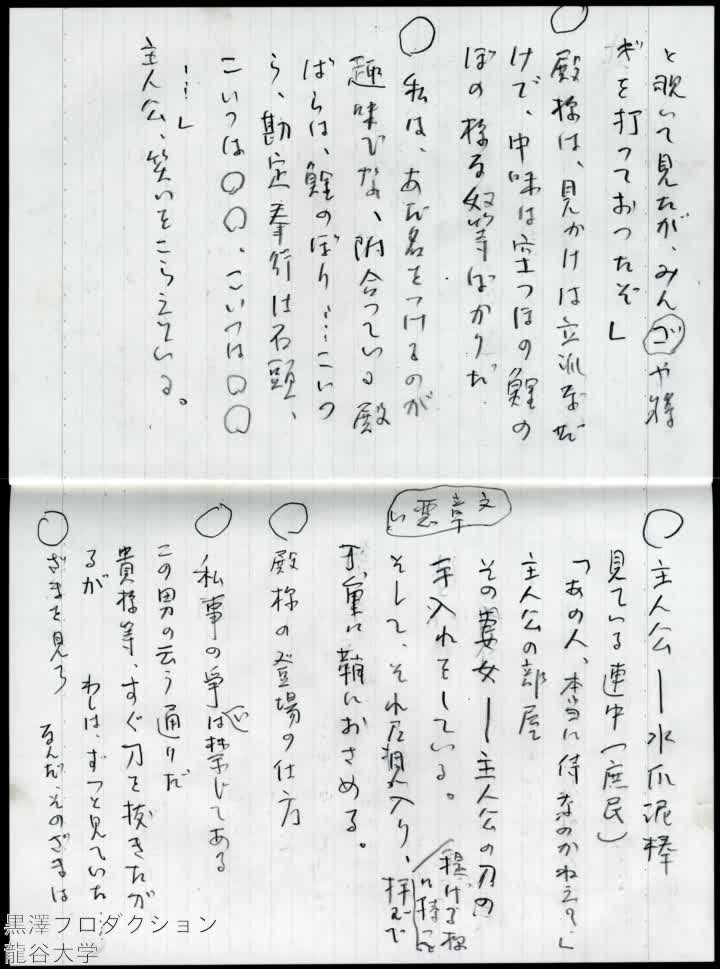 と覗いて見たが、みんゴや将
ギを打っておったぞ」
殿様は、見かけは立派なだ
けで、中味は空っぽの鯉の
ぼの様な奴等ばかりだ
私は、あだ名をつけるのが
趣味でな、附合っている殿
ばらは、鯉のぼり…こいつ
ら、勘定奉行は石頭、
こいつは〇〇、こいつは〇〇
…」
主人公、笑いをこらえている。
主人公ー水爪泥棒
見ている連中(庶民)
「あの人、本当に侍なのかねえ?」
主人公の部屋
文章悪い
その妻女ー主人公の刀の
手入れをしている。
そして、それに
鞘におさめる。
提げる様
に持つ
殿様の登場の仕方
私事の争は禁じてある
この男の云う通りだ
貴様等、すぐ刀を抜きたが
るが わしは、ずっと見ていた
ざまを見ろ なんだ、そのざまは
黒澤プロダクション
龍谷大学